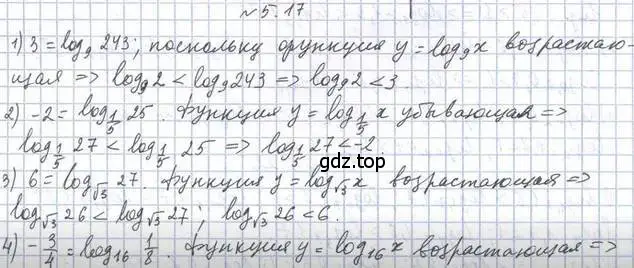 №5.17
1) 3 = log₉ 243; поскольку функция y = log₉x возрастаю-
щая => log₉2 < log₉243 => log₉2 < 3.
2) -2 = log_{1/5} 25. Функция y = log_{1/5} x убывающая =>
log_{1/5} 27 < log_{1/5} 25 => log_{1/5} 27 < -2
3) 6 = log_{√3} 27. Функция y = log_{√3} x возрастающая =>
log_{√3} 26 < log_{√3} 27; log_{√3} 26 < 6.
4) -3/4 = log₁₆ 1/8. Функция y = log₁₆ x возрастающая =>
gdz.top